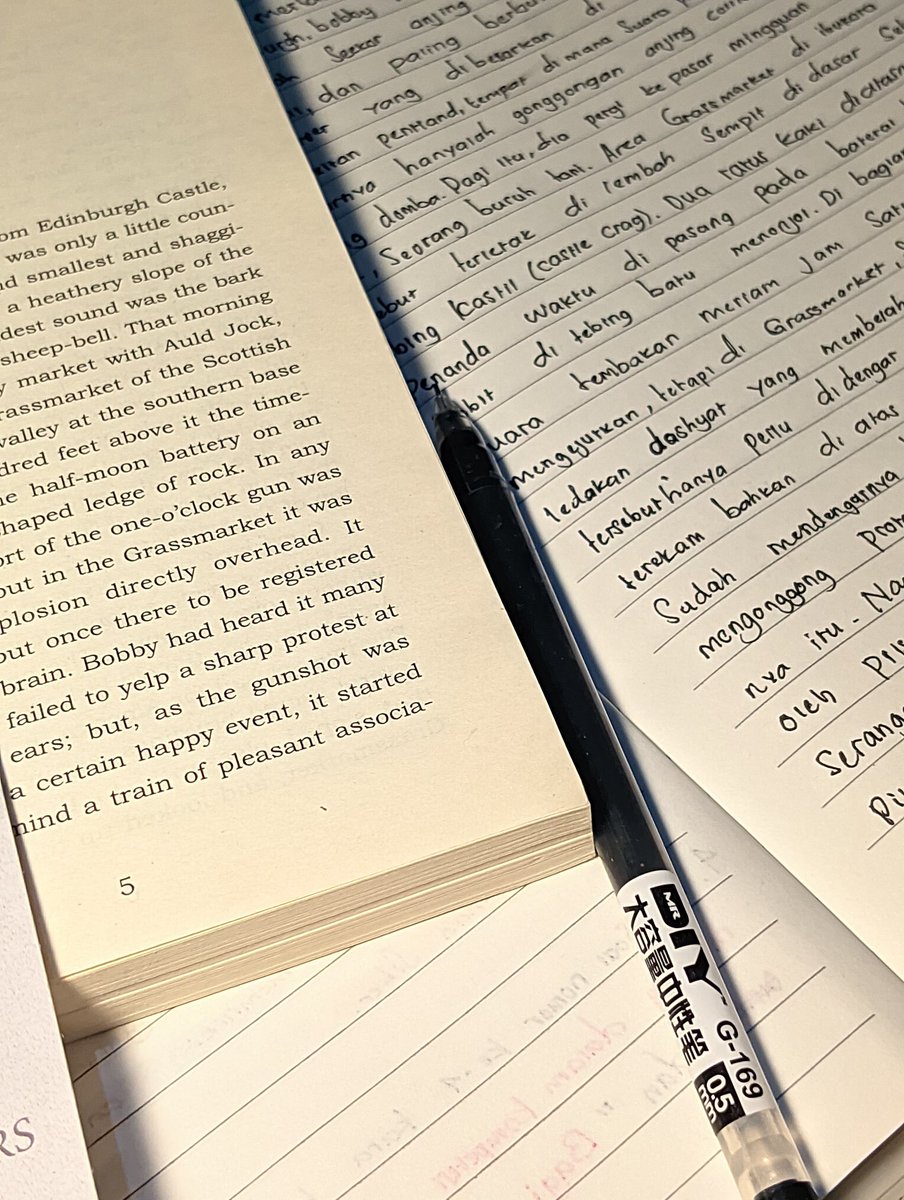 om Edinburgh Castle,
was only a little coun-
nd smallest and shaggi-
a heathery slope of the
dest sound was the bark
sheep-bell. That morning
y market with Auld Jock,
rassmarket of the Scottish
valley at the southern base
dred feet above it the time-
he half-moon battery on an
haped ledge of rock. In any
ort of the one-o'clock gun was
out in the Grassmarket it was
plosion directly overhead. It
but once there to be registered
brain. Bobby had heard it many
failed to yelp a sharp protest at
ears; but, as the gunshot was
a certain happy event, it started
mind a train of pleasant associa-
5
urgh. bobby
Seekor anjing
, dan paling
yang dibesarkan di
pentland, tempat di mana suara
hanyalah gonggongan anjing
domba. Pagi itu, dia pergi ke pasar mingguan
, Seorang buruh tani. Area Grassmarket di
terletak di lembah Sempit di dasar
bing Kastil (castle crag). Dua ratus kaki diatasnya
Penanda waktu di pasang pada baterai
bit di tebing batu menonjol. Di bagian
uara tembakan meriam Jam Satu
mengejutkan, tetapi di Grassmarket,
ledakan dashyat yang membelah
tersebut hanya perlu di dengar
terekam bahkan di atas
Sudah mendengarnya
mengonggong
nya itu - Na
oleh
Serang
MR DIY
大容量中性笔
G-169
0.5
mm
RS